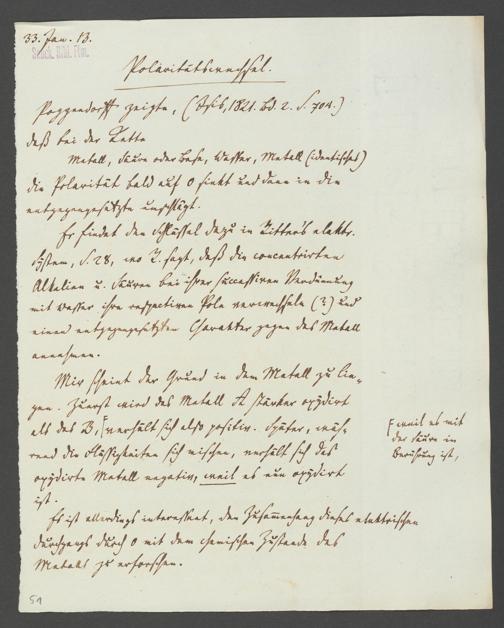 33. Jan. 13.
Polaritätswechsel.
Poggendorff zeigte, (Isis, 1821. Bd. 2. S. 704.)
daß bei der Kette
Metall, Säure oder Base, Wasser, Metall (identisches)
die Polarität bald auf 0 sinkt und dann in die
entgegengesetzte umschlägt.
Er findet den Schlüssel dazu in Ritter's elektr.
System, S. 28, wo R. sagt, daß die concentrirten
Alkalien u. Säuren bei ihrer successiven Verdünnung
mit Wasser ihre respectiven Pole verwechseln (?) und
einen entgegengesetzten Charakter gegen das Metall
annehmen.
Mir scheint der Grund in dem Metall zu lie-
gen. Zuerst wird das Metall A stärker oxydirt
als das B, verhält sich also positiv. Später, wäh-
rend die Flüssigkeiten sich mischen, verhält sich das
oxydirte Metall negativ, weil es nun oxydirt
ist.
weil es mit
der Säure in
Berührung ist,
Es ist allerdings interessant, den Zusammenhang dieses elektrischen
Durchgangs durch 0 mit dem chemischen Zustande des
Metalls zu erforschen.
51